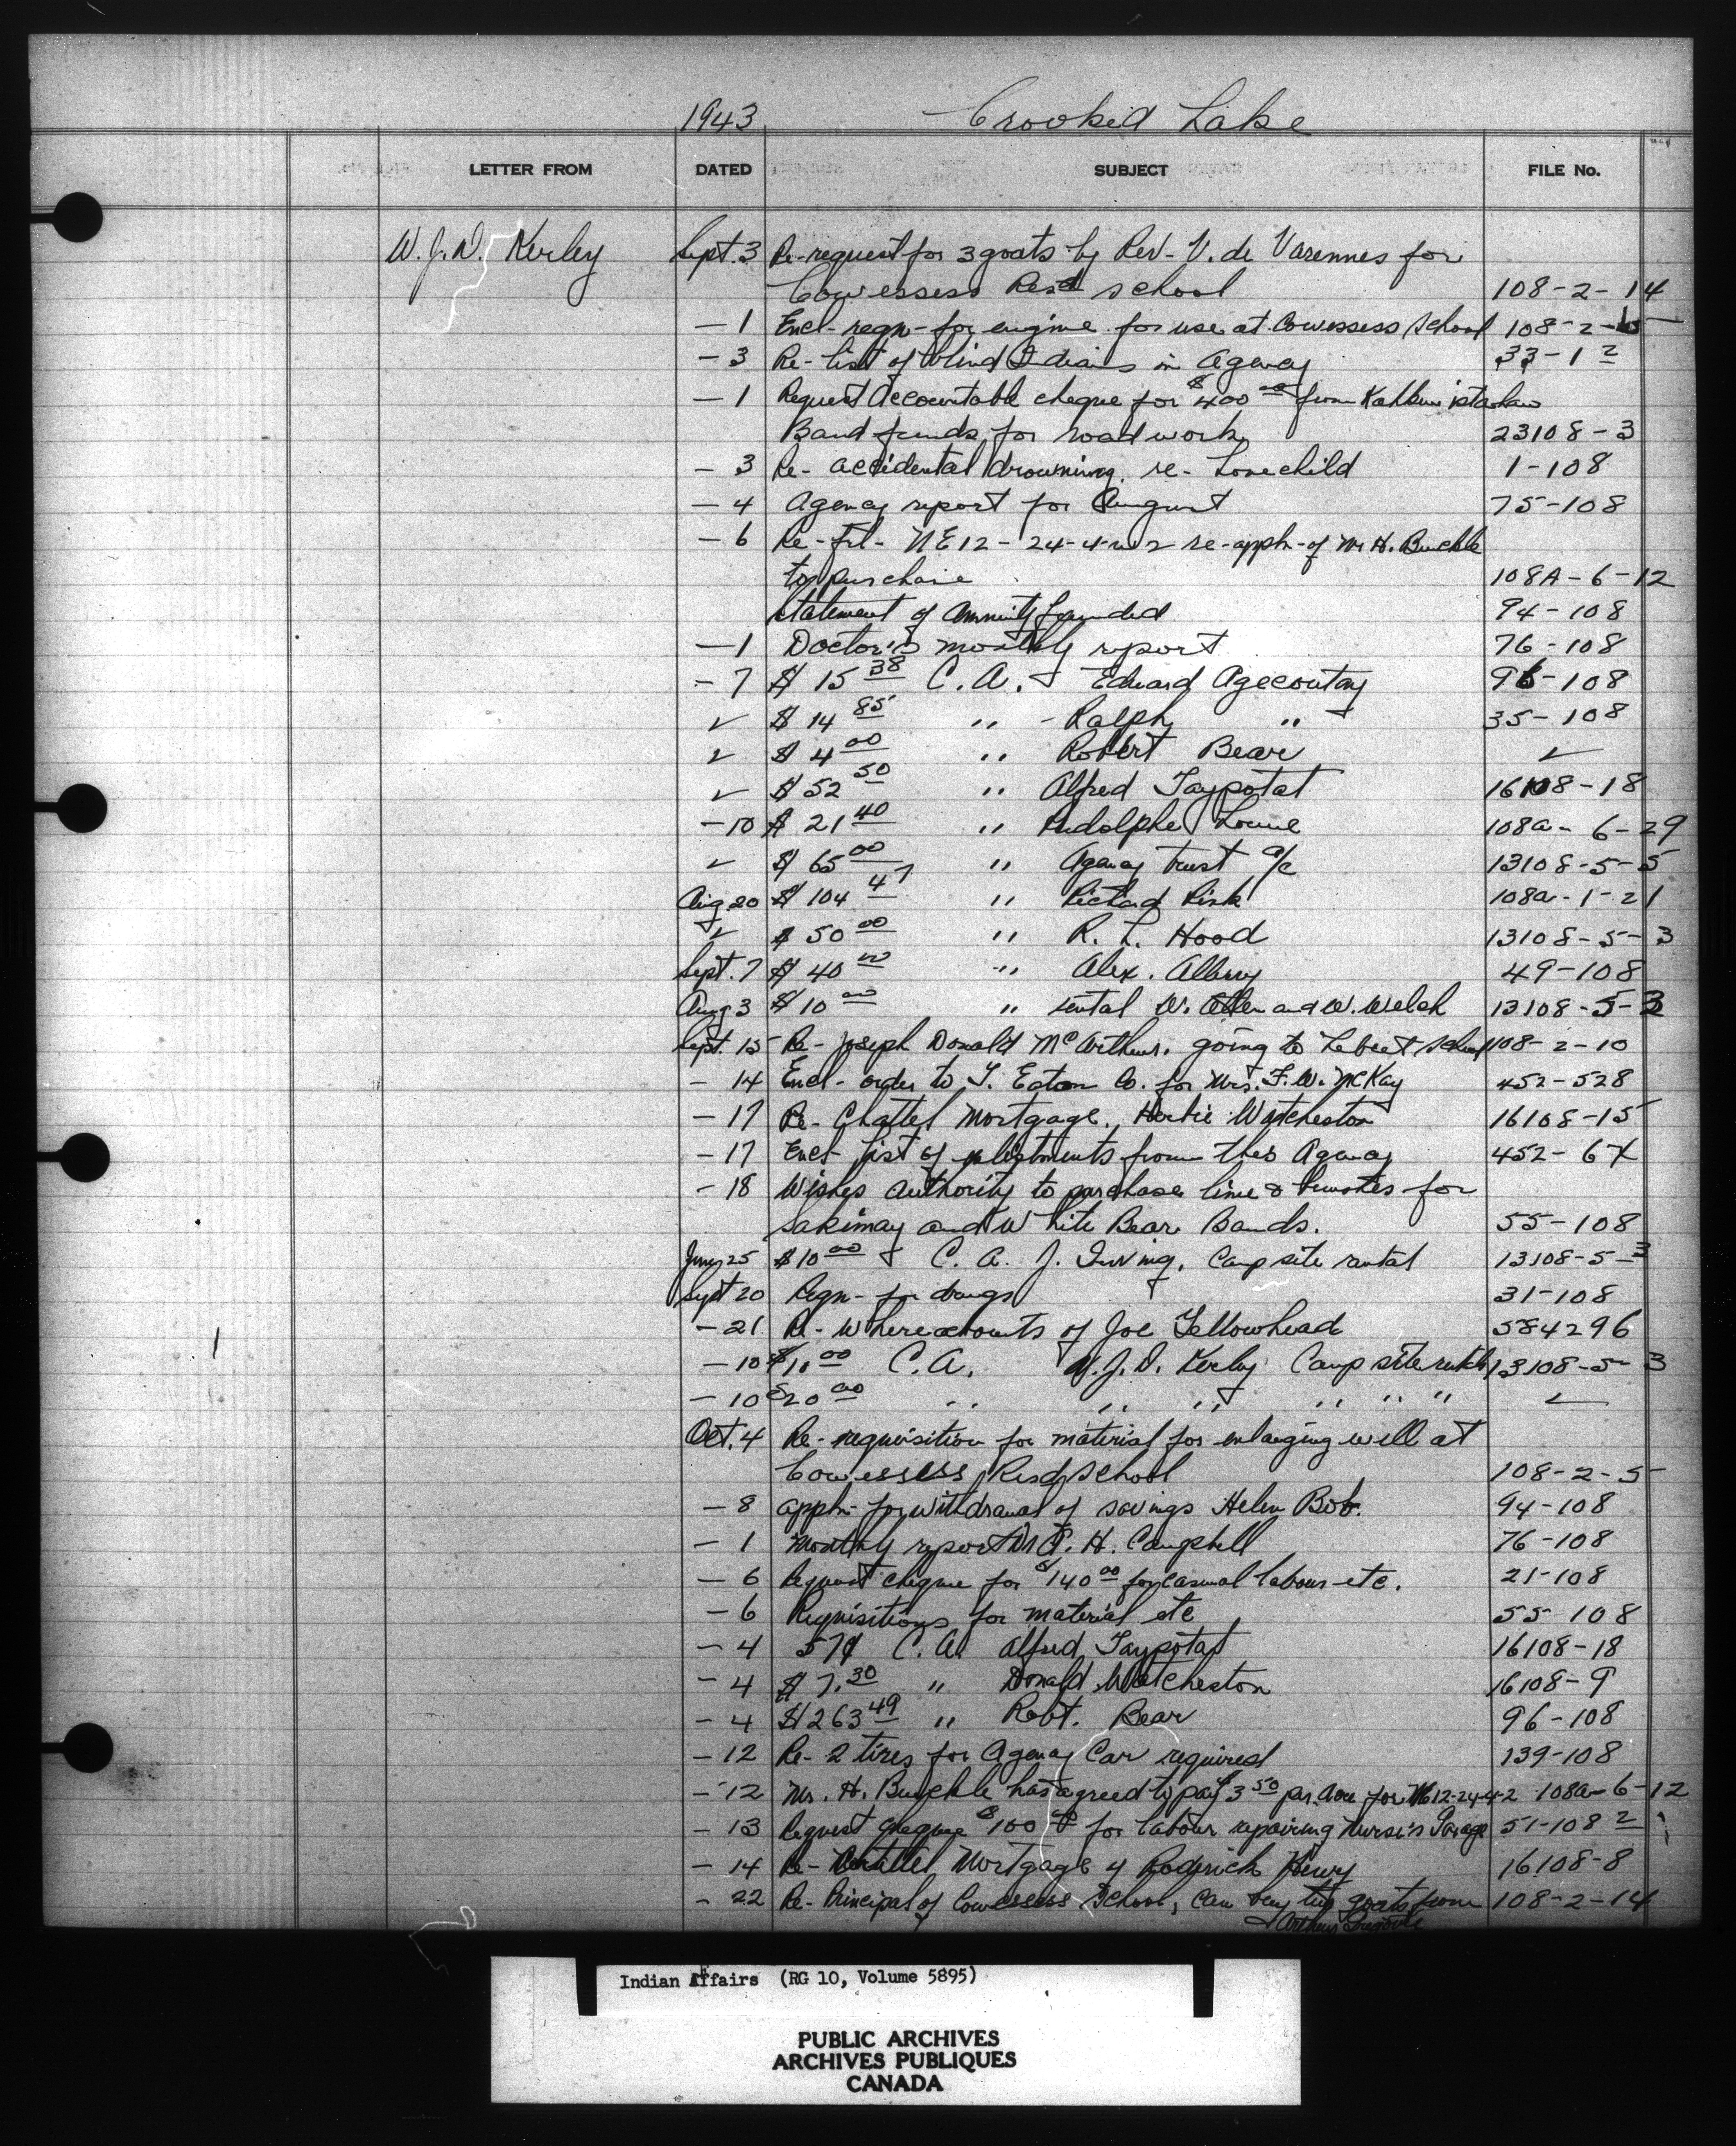 1943 Crooked Lake
LETTER FROM DATED SUBJECT FILE No.
W. J. D. Kerley Sept. 3 Re-request for 3 goats by Rev. V. de Varennes for
Cowessess Resd school 108-2-14
- 1 Encl-reqn-for engine for use at Cowessess School 108-2-
- 3 Re-list of blind Indians in Agency 33-1 2
- 1 Request Accountable cheque for $400 00 from
Band funds for road work 23108-3
- 3 Re-accidental drowning. re-Lonechild 1-108
- 4 Agency report for August 75-108
- 6 Re- NE12-24-4-w2 re-appln-of Mr H. Buckle
to purchase 108A-6-12
Statement of Annuity funded 94-108
- 1 Doctor's monthly report 76-108
- 7 $15 38 C. A. Edward Agecoutay 96-108
✓ $14 85 " - Ralph " 35-108
✓ $4 00 " Robert Bear ✓
✓ $52 50 " Alfred Taypotat 16108-18
- 10 $21 40 " Rudolphe 108a-6-29
✓ $65 00 " Agency trust a/c 13108-5-5
Aug. 20 $104 47 " Richard 108a-1-21
✓ $50 00 " R. L. Hood 13108-5-3
Sept. 7 $40 00 " Alex. 49-108
Aug 3 $10 00 " rental W. Allen and W. Welsh 13108-5-3
Sept. 15 Re-Joseph Donald McArthur. going to Lebret School 108-2-10
- 14 Encl-order to T. Eaton Co. for Mrs. F. W. McKay 452-528
- 17 Re-Chattel Mortgage. Herbie Watcheston 16108-15
- 17 Encl-list of enlistments from this Agency 452-
- 18 Wishes authority to purchase lime & brushes for
Sakimay and White Bear Bands. 55-108
25 $10 00 C. A. J. Irving, Camp site rental 13108-5-3
Sept 20 Reqn-for drugs 31-108
- 21 Re-Whereabouts of Joe Yellowhead 584296
- 10 $10 00 C. A. W. J. D. Kerley Camp site rentals 13108-5-3
- 10 $20 00 " " " " " " ✓
Oct. 4 Re-requisition for material for enlarging well at
Cowessess Resd School 108-2-5
- 8 appln-for withdrawal of savings Helen Bob. 94-108
- 1 Monthly report Dr H. Campbell 76-108
- 6 Request cheque for $140 00 for casual labour-etc. 21-108
- 6 Requisitions for material etc 55-108
- 4 57¢ C. A. Alfred Taypotat 16108-18
- 4 $7.30 " Donald Watcheston 16108-9
- 4 $263 49 " Robt. Bear 96-108
- 12 Re-2 tires for Agency Car required 139-108
- 12 Mr. H. Buckle has agreed to pay $3 50 per. Acre for NE12-24-4-2 108a-6-12
- 13 Request cheque $100 00 for labour repairing Nurse's Garage 51-108 2
- 14 Re-Chattel Mortgage of Roderick Henry 16108-8
- 22 Re-Principal of Cowessess School, can buy two goats from 108-2-14
Arthur
Indian Affairs (RG 10, Volume 5895)
PUBLIC ARCHIVES
ARCHIVES PUBLIQUES
CANADA